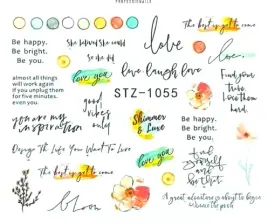 PROFESSIONAILS
The best is yet to come
Be happy.
Be bright.
Be you.
she believed she could
so she did
love
love.
almost all things
will work again
if you unplug them
for five minutes.
even you.
love you
live laugh love
STZ-1055
Find your
true
Love them
hard.
good
vibes
only
you are my
inspiration
Shimmer
& Luxe
Be happy.
Be bright.
Be you.
Design The Life You Want To Live
love you
find
yourself
and
be that
The best is yet to come
bloom
A great adventure is about to begin